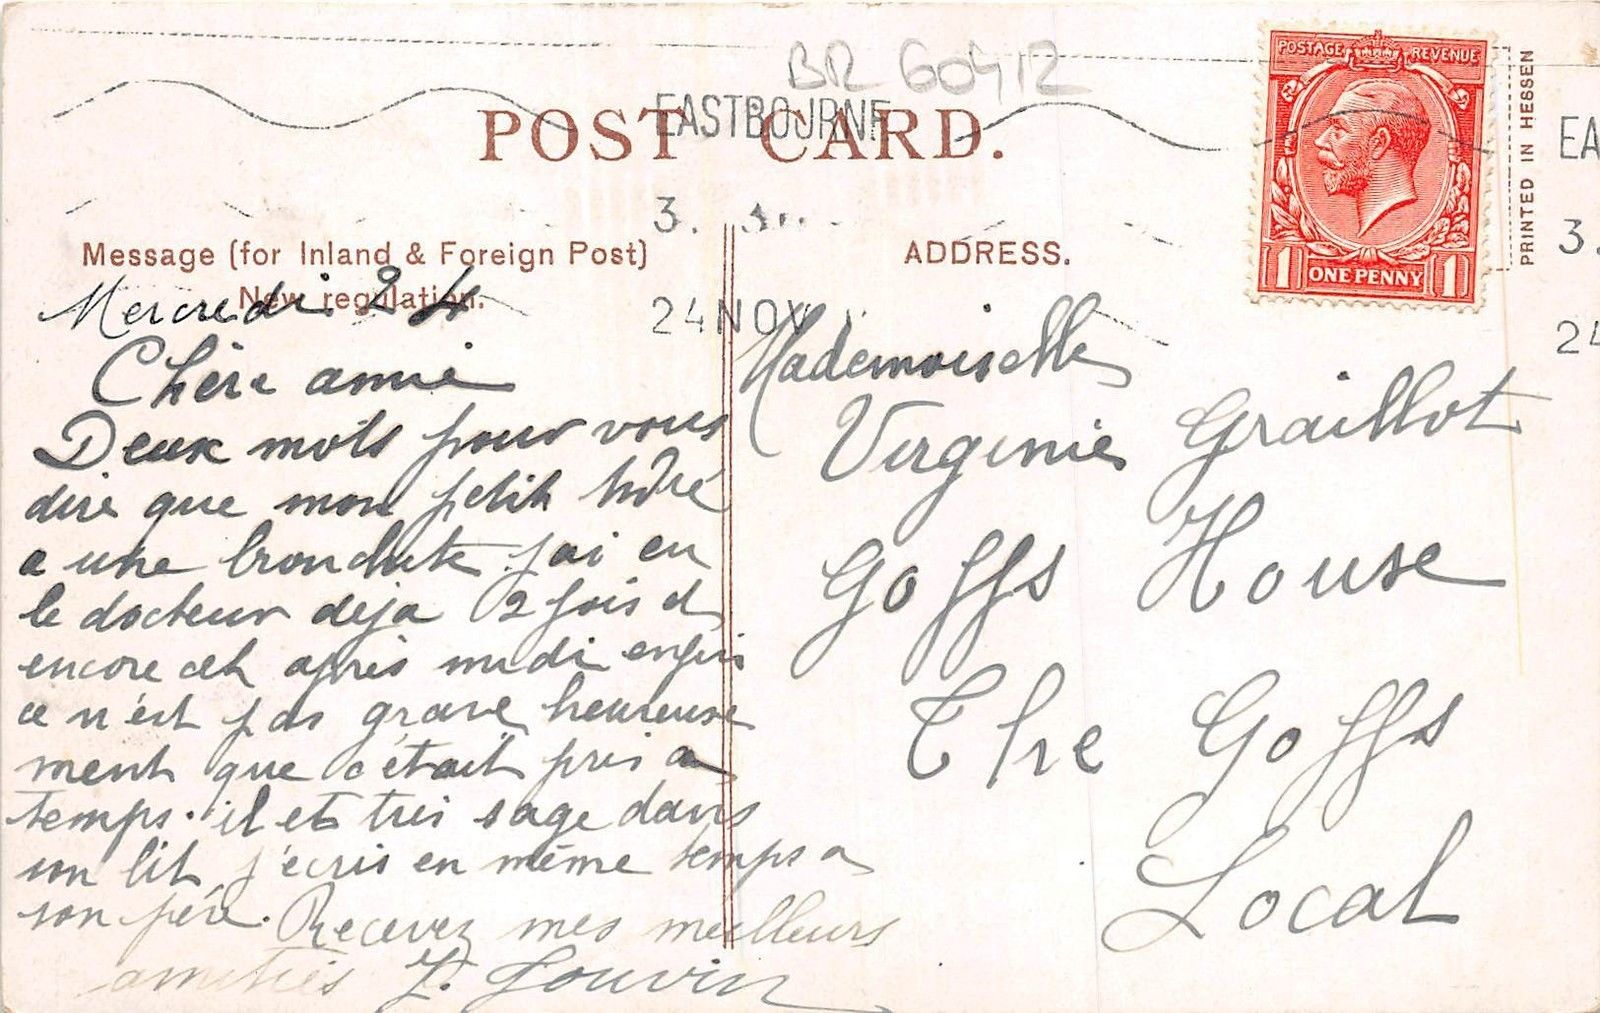 BR 60412
POST CARD.
EASTBOURNE
3.
24 NOV
POSTAGE REVENUE
1 ONE PENNY 1
PRINTED IN HESSEN
EA
3.
24
Message (for Inland & Foreign Post)
New regulation.
ADDRESS.
Mercredi 24
Chère amie
Deux mots pour vous
dire que mon petit
a une bronchite j'ai eu
le docteur deja 2 fois et
encore cet après midi enfin
ce n'est pas grave heureuse
ment que c'était pris a
temps. il et très sage dans
son lit j'écris en même temps a
son père. Recevez mes meilleurs
amitiés
Mademoiselle
Virginie Graillot
Goffs House
The Goffs
Local